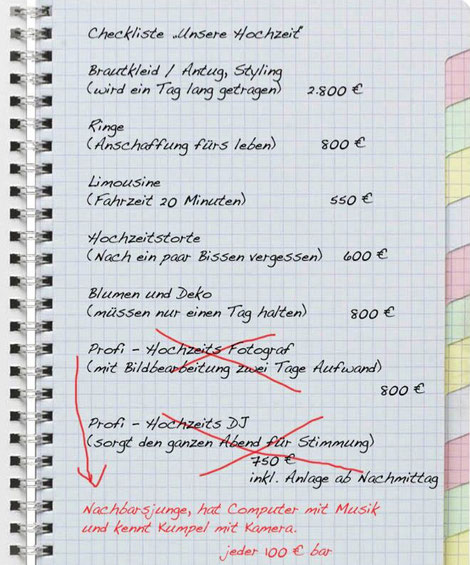 Checkliste „Unsere Hochzeit“
Brautkleid / Antug, Styling
(wird ein Tag lang getragen) 2.800 €
Ringe
(Anschaffung fürs leben) 800 €
Limousine
(Fahrzeit 20 Minuten) 550 €
Hochzeitstorte
(Nach ein paar Bissen vergessen) 600 €
Blumen und Deko
(müssen nur einen Tag halten) 800 €
Profi - Hochzeits Fotograf
(mit Bildbearbeitung zwei Tage Aufwand)
800 €
Profi - Hochzeits DJ
(sorgt den ganzen Abend für Stimmung)
750 €
inkl. Anlage ab Nachmittag
Nachbarsjunge, hat Computer mit Musik
und kennt Kumpel mit Kamera.
jeder 100 € bar